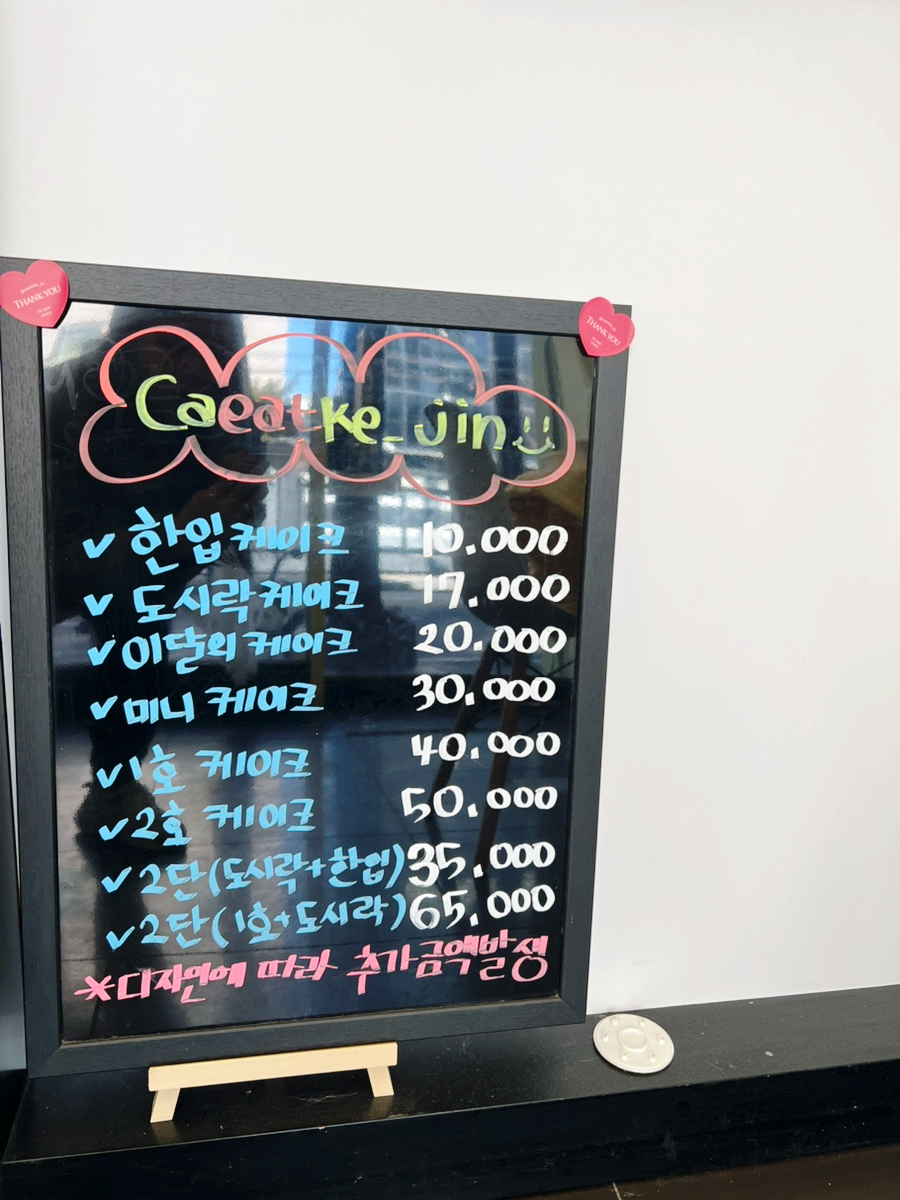 THANK YOU
THANK YOU
Caeatke_jin
✓ 한입 케이크 10.000
✓ 도시락 케이크 17.000
✓ 이달의 케이크 20.000
✓ 미니 케이크 30.000
✓ 1호 케이크 40.000
✓ 2호 케이크 50.000
✓ 2단(도시락+한입) 35.000
✓ 2단(1호+도시락) 65.000
*디자인에 따라 추가금액발생